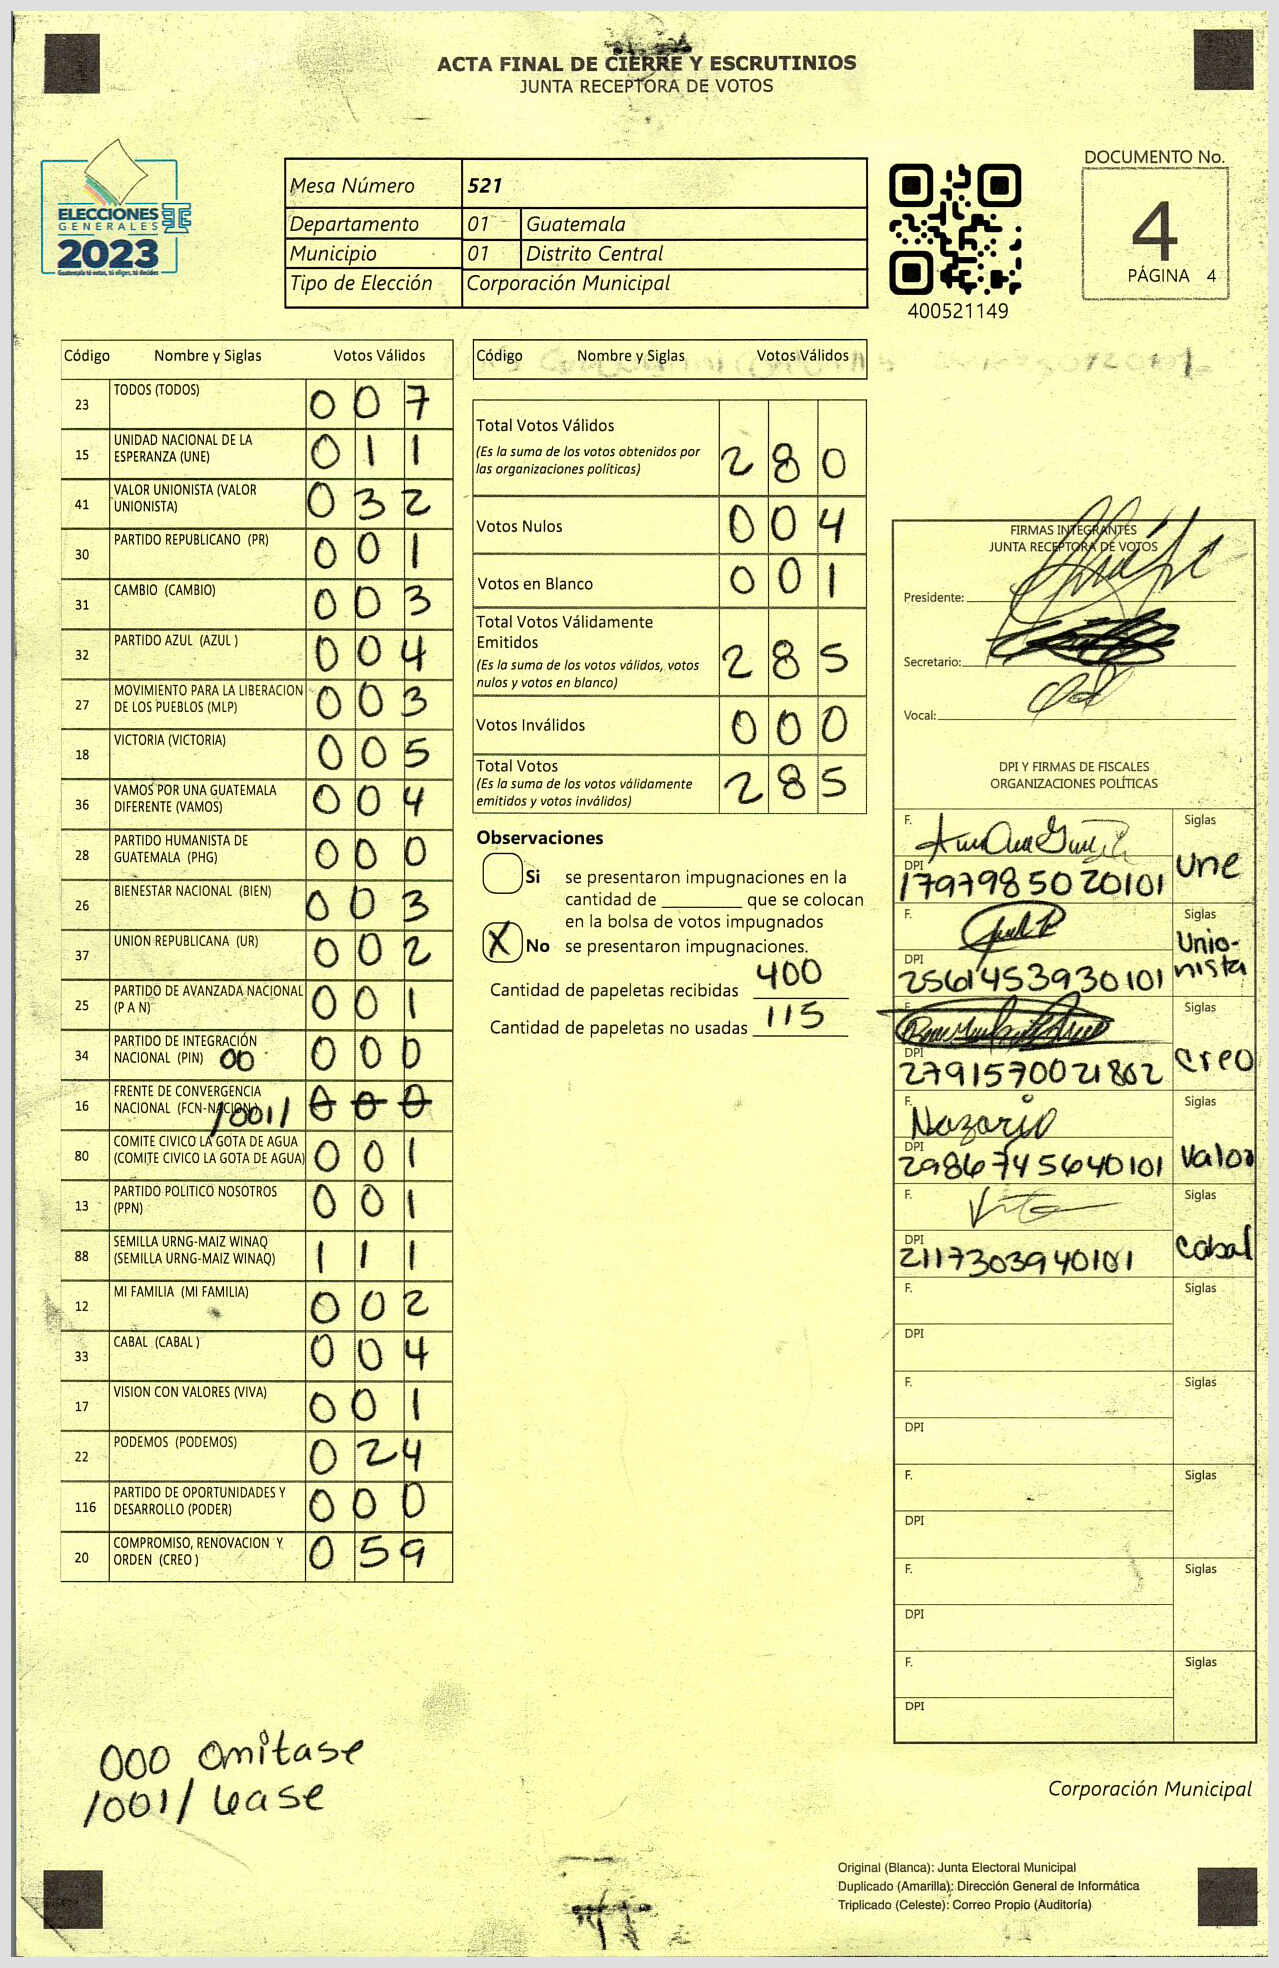 ACTA FINAL DE CIERRE Y ESCRUTINIOS
JUNTA RECEPTORA DE VOTOS
ELECCIONES
GENERALES
2023
Guatemala tú votas, tú eliges, tú decides
Mesa Número 521
Departamento 01 Guatemala
Municipio 01 Distrito Central
Tipo de Elección Corporación Municipal
400521149
DOCUMENTO No.
4
PÁGINA 4
Código Nombre y Siglas Votos Válidos
23 TODOS (TODOS) 0 0 7
15 UNIDAD NACIONAL DE LA ESPERANZA (UNE) 0 1 1
41 VALOR UNIONISTA (VALOR UNIONISTA) 0 3 2
30 PARTIDO REPUBLICANO (PR) 0 0 1
31 CAMBIO (CAMBIO) 0 0 3
32 PARTIDO AZUL (AZUL ) 0 0 4
27 MOVIMIENTO PARA LA LIBERACION DE LOS PUEBLOS (MLP) 0 0 3
18 VICTORIA (VICTORIA) 0 0 5
36 VAMOS POR UNA GUATEMALA DIFERENTE (VAMOS) 0 0 4
28 PARTIDO HUMANISTA DE GUATEMALA (PHG) 0 0 0
26 BIENESTAR NACIONAL (BIEN) 0 0 3
37 UNION REPUBLICANA (UR) 0 0 2
25 PARTIDO DE AVANZADA NACIONAL (P A N) 0 0 1
34 PARTIDO DE INTEGRACIÓN NACIONAL (PIN) 00 0 0 0
16 FRENTE DE CONVERGENCIA NACIONAL (FCN-NACION) /001/ 0 0 0
80 COMITE CIVICO LA GOTA DE AGUA (COMITE CIVICO LA GOTA DE AGUA) 0 0 1
13 PARTIDO POLITICO NOSOTROS (PPN) 0 0 1
88 SEMILLA URNG-MAIZ WINAQ (SEMILLA URNG-MAIZ WINAQ) 1 1 1
12 MI FAMILIA (MI FAMILIA) 0 0 2
33 CABAL (CABAL ) 0 0 4
17 VISION CON VALORES (VIVA) 0 0 1
22 PODEMOS (PODEMOS) 0 2 4
116 PARTIDO DE OPORTUNIDADES Y DESARROLLO (PODER) 0 0 0
20 COMPROMISO, RENOVACION Y ORDEN (CREO ) 0 5 9
000 Omitase
/001/ Lease
Código Nombre y Siglas Votos Válidos
Total Votos Válidos 2 8 0
(Es la suma de los votos obtenidos por
las organizaciones políticas)
Votos Nulos 0 0 4
Votos en Blanco 0 0 1
Total Votos Válidamente
Emitidos 2 8 5
(Es la suma de los votos válidos, votos
nulos y votos en blanco)
Votos Inválidos 0 0 0
Total Votos 2 8 5
(Es la suma de los votos válidamente
emitidos y votos inválidos)
Observaciones
Si se presentaron impugnaciones en la
cantidad de ________ que se colocan
en la bolsa de votos impugnados
X No se presentaron impugnaciones.
Cantidad de papeletas recibidas 400
Cantidad de papeletas no usadas 115
FIRMAS INTEGRANTES
JUNTA RECEPTORA DE VOTOS
Presidente:
Secretario:
Vocal:
DPI Y FIRMAS DE FISCALES
ORGANIZACIONES POLÍTICAS
F. Siglas
DPI 1797985020101 une
F. Siglas
DPI 2561453930101 Unio-
nista
F. Siglas
DPI 2791570021802 creo
F. Nazario Siglas
DPI 2986745640101 Valor
F. Siglas
DPI 2117303940101 Cabal
F. Siglas
DPI
F. Siglas
DPI
F. Siglas
DPI
F. Siglas
DPI
F. Siglas
DPI
Corporación Municipal
Original (Blanca): Junta Electoral Municipal
Duplicado (Amarilla): Dirección General de Informática
Triplicado (Celeste): Correo Propio (Auditoría)